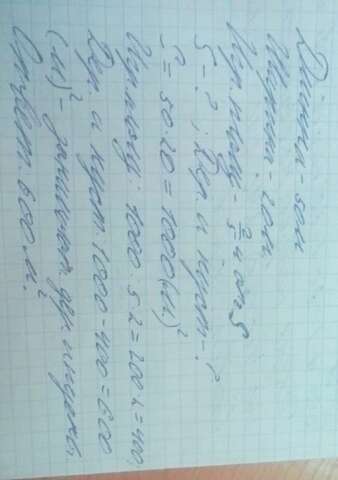 Длина - 50м
Ширина - 20м
Игр. площ - 2/5 ч от S
S - ? ; Дер. и куст - ?
S = 50·20 = 1000(м)²
Игр площ: 1000:5·2=200·2=400.
Дер. и куст. 1000-400=600
(м)² - занимают дер. и кустов.
Ответ. 600.м²